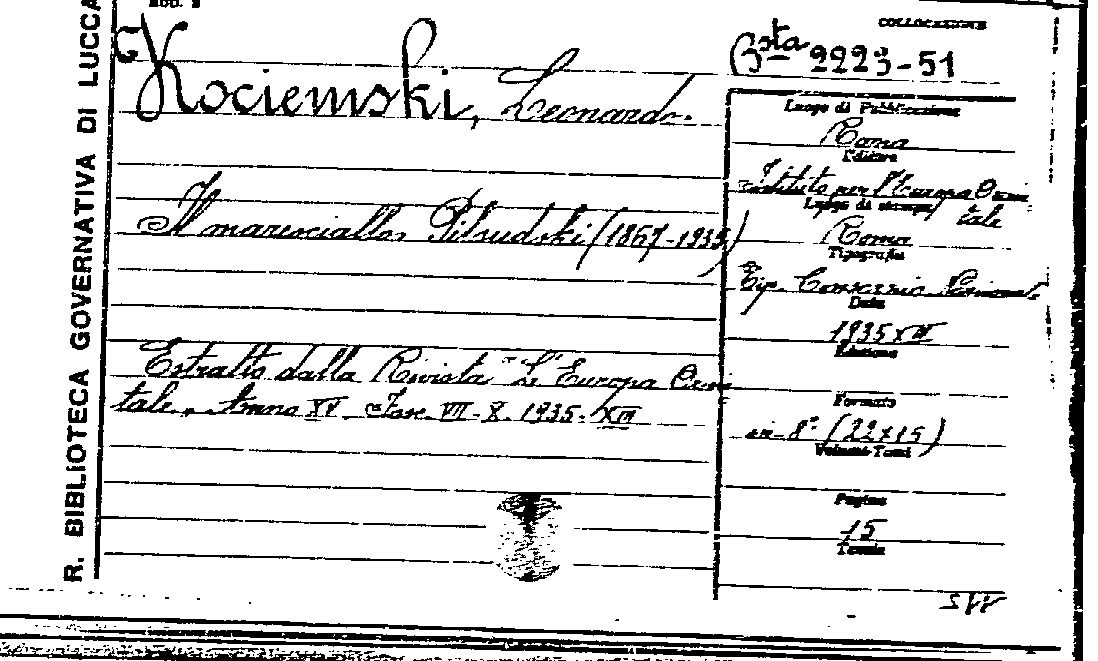 R. BIBLIOTECA GOVERNATIVA DI LUCCA
MOD. 2
COLLOCAZIONE
Bsta 2223-51
Kociemski, Leonardo.
Luogo di Pubblicazione
Roma
Editore
Istituto per l'Europa Orien
tale
Luogo di stampa
Il maresciallo Pilsudski (1867-1935)
Roma
Tipografia
Tip. Consorzio Nazionale
Data
1935 XIII
Edizione
Estratto dalla Rivista "L'Europa Orien
tale, Anno XV Fasc. VII-X. 1935-XIII
Formato
in-8° (22x15)
Volumi-Tomi
Pagine
15
Tavole